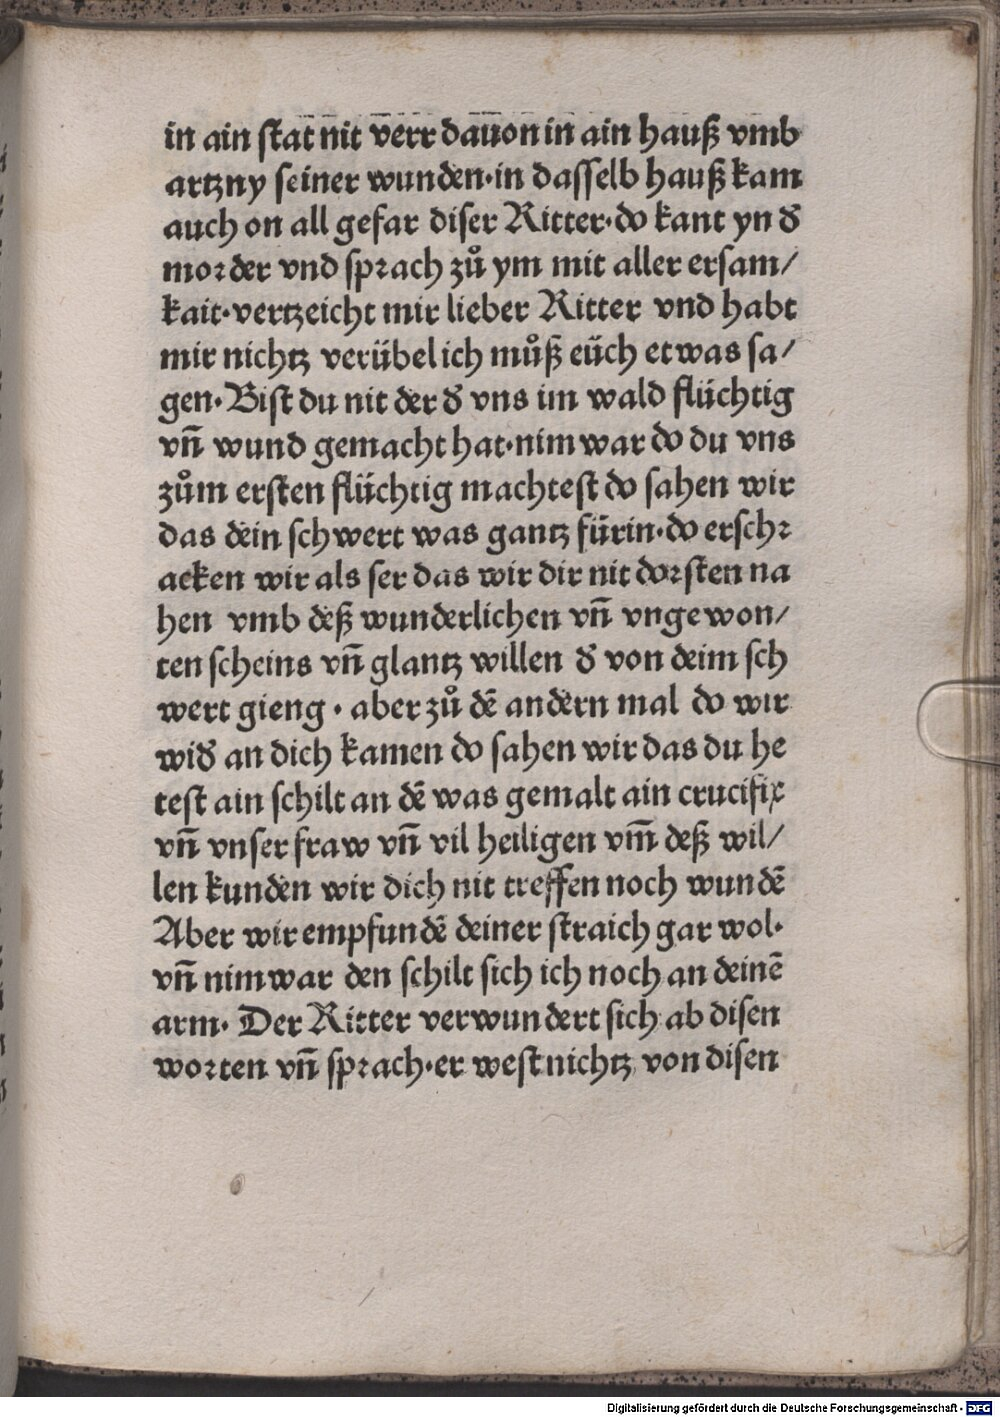 in ain stat nit verr dauon in ain hauß vmb
artzny seiner wunden·in dasselb hauß kam
auch on all gefar diser Ritter·do kant yn đ
morder vnd sprach zů ym mit aller ersam/
kait·vertzeicht mir lieber Ritter vnd habt
mir nichtz verübel ich můß eüch etwas sa/
gen·Bist du nit der đ vns im wald flüchtig
vñ wund gemacht hat·nim war do du vns
zům ersten flüchtig machtest do sahen wir
das dein schwert was gantz fürin·do erschr
acken wir als ser das wir dir nit dorsten na
hen vmb deß wunderlichen vñ vngewon/
ten scheins vñ glantz willen đ von deim sch
wert gieng · aber zů dē andern mal do wir
wiđ an dich kamen do sahen wir das du he
test ain schilt an dē was gemalt ain crucifix
vñ vnser fraw vñ vil heiligen vm̄ deß wil/
len kunden wir dich nit treffen noch wundē
Aber wir empfundē deiner straich gar wol·
vñ nim war den schilt sich ich noch an deinē
arm· Der Ritter verwundert sich ab disen
worten vñ sprach·er west nichtz von disen
Digitalisierung gefördert durch die Deutsche Forschungsgemeinschaft - DFG